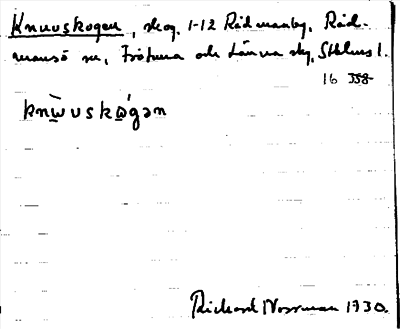 Knuvskogen, skog, 1-12 Rådmanby, Råd-
mansö sn, Frötuna och Länna skg, Sthlms l.
16 358
knu̠̇vskǻ̠gən
Richard Norrman 1930.